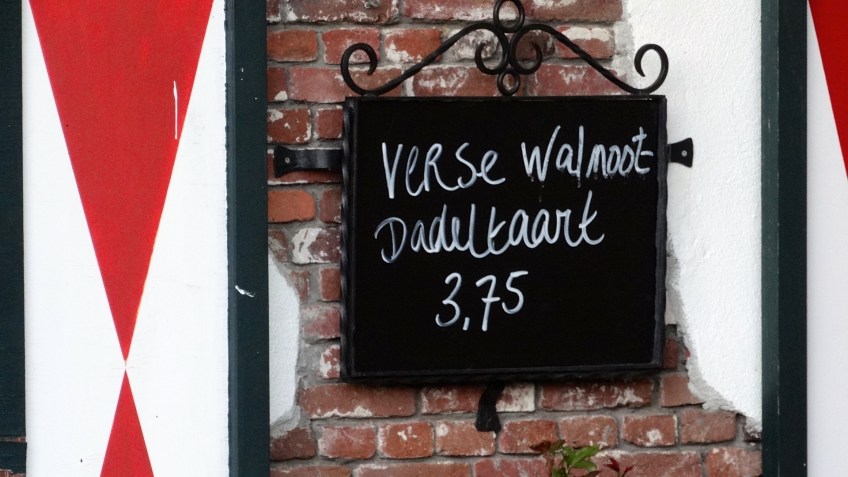 Verse Walnoot-
Dadeltaart
3,75